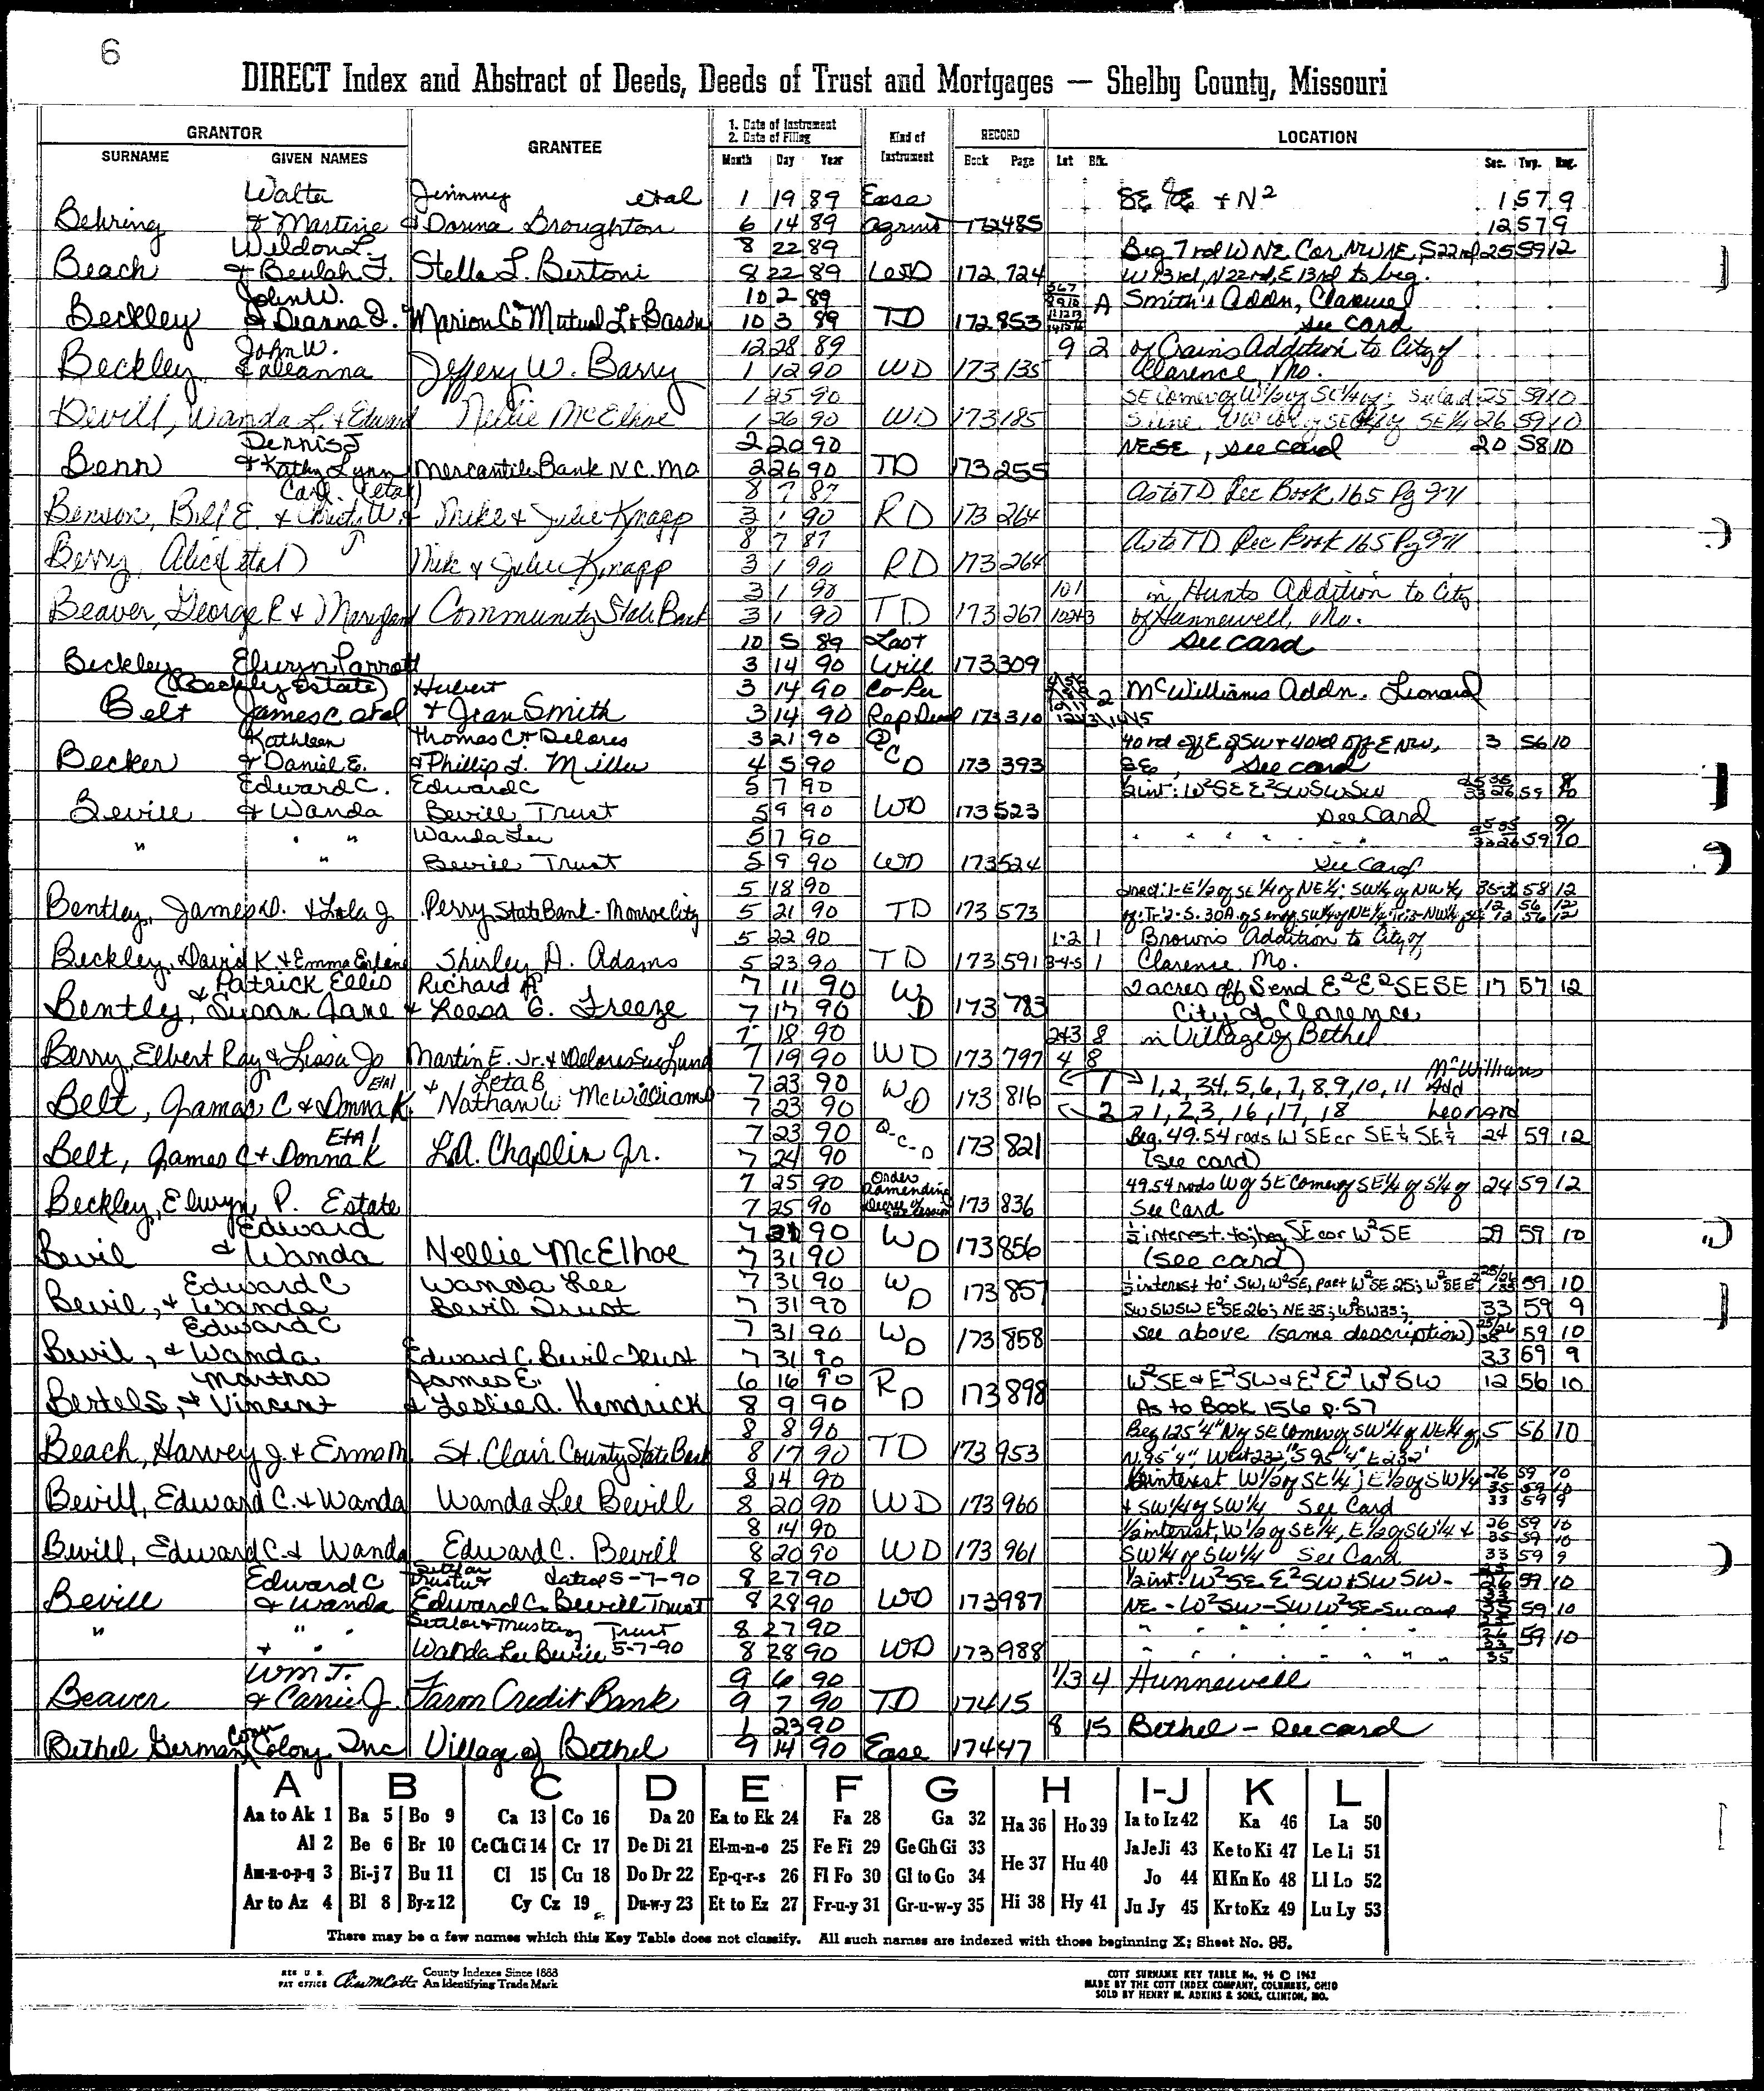 6
DIRECT Index and Abstract of Deeds, Deeds of Trust and Mortgages — Shelby County, Missouri
GRANTOR GRANTEE 1. Date of Instrument 2. Date of Filing Kind of Instrument RECORD LOCATION
SURNAME GIVEN NAMES Month Day Year Book Page Lot Blk. Sec. Twp. Rng.
Walter Jimmy etal 1 19 89 Ease + N2 1 57 9
Behring & Martine & Donna Broughton 6 14 89 agrmt 172 485 12 57 9
Weldon L. 8 22 89 Beg 7 rd W NE Cor NWNE, S22rd 25 59 12
Beach & Beulah F. Stella L. Bertoni 8 22 89 172 724 W 13rd, N22rd, E 13rd to beg.
John W. 10 2 89 A Smith's Addn, Clarence
Beckley & Deanna Marion Co Mutual L & 10 3 89 TD 172 853 See card
John W. 12 28 89 9 2 of Crain's Addition to City of
Beckley & Deanna Jeffery W. Barry 1 12 90 WD 173 135 Clarence, Mo.
1 25 90 SE Corner of W1/2 of SE1/4 of; See Card 25 59 10
Bevill, Wanda L. & Edward Nellie McElhoe 1 26 90 WD 173 185 SE1/4 26 59 10
Dennis J 2 20 90 NESE, see card 20 58 10
Benn & Kathy Lynn Mercantile Bank N.C. Mo 2 26 90 TD 173 255
Carl (etal) 8 7 87 As to TD Rec Book 165 Pg 371
Benson, Bill E. & Christy W. & Mike & Julie Knapp 3 1 90 RD 173 264
8 7 87 As to TD Rec Book 165 Pg 371
Berry, Alice (etal) Mike & Julie Knapp 3 1 90 RD 173 264
3 1 90 10 1 in Hunts Addition to City
Beaver, George R & Maryland Community State Bank 3 1 90 TD 173 267 of Hunnewell, Mo.
10 5 89 Last See card
Beckley Elwyn Parrott 3 14 90 Will 173 309
(Beckley Estate) Hubert 3 14 90 Co-Per 2 McWilliams Addn. Leonard
Belt James C etal & Jean Smith 3 14 90 Rep Deed 173 310
Kathleen Thomas C & Delores 3 21 90 QCD 40 rd off E of SW & 40rd off E NW, 3 56 10
Becker & Daniel E. & Phillip J. Miller 4 5 90 173 393 SE, See card
Edward C. Edward C 5 7 90 1/2 int: W2SE E2SWSWSW 59
Bevill & Wanda Bevill Trust 5 9 90 WD 173 523 See Card
Wanda Lee 5 7 90 " " " " " " 59 10
" " " Bevill Trust 5 9 90 WD 173 524 See Card
5 18 90 Tract 1-E1/2 of SE1/4 of NE1/4; SW1/4 of NW1/4 58 12
Bentley, James D. & Lola J Perry State Bank - Monroe City 5 21 90 TD 173 573 12 56 12
5 22 90 1-2 1 Brown's Addition to City of
Beckley, David K. & Emma Shirley A. Adams 5 23 90 TD 173 591 3-4-5 1 Clarence, Mo.
& Patrick Ellis Richard A 7 11 90 WD 2 acres off S end E2E2SESE 17 57 12
Bentley, Susan Jane & Leesa G. Freeze 7 17 90 173 783 City of Clarence
7 18 90 2&3 8 in Village of Bethel
Berry, Elbert Ray & Lissa Jo Martin E. Jr. & Delores Sue Lund 7 19 90 WD 173 797 4 8
Etal & Leta B 7 23 90 WD 1 1, 2, 3 4, 5, 6, 7, 8, 9, 10, 11 McWilliams Add
Belt, James C & Donna K Nathan W McWilliams 7 23 90 173 816 2 1, 2, 3, 16, 17, 18 Leonard
Etal 7 23 90 Q-C-D Beg. 49.54 rods W SEcr SE1/4 SE1/4 24 59 12
Belt, James C & Donna K L.A. Chaplin Jr. 7 24 90 173 821 (see card)
7 25 90 Order Admending 49.54 rods W of SE Corner of SE1/4 of S1/4 of 24 59 12
Beckley, Elwyn P. Estate 7 25 90 173 836 See Card
Edward 7 31 90 WD 1/2 interest to; beg SE cor W2SE 29 59 10
Bevil & Wanda Nellie McElhoe 7 31 90 173 856 (see card)
Edward C Wanda Lee 7 31 90 WD 1/2 interest to: SW, W2SE, part W2SE 25; W2SE E2 59 10
Bevil, & Wanda Bevil Trust 7 31 90 173 857 SWSWSW E2SE26; NE 35; W2SW33; 33 59 9
Edward C 7 31 90 WD 173 858 see above (same description) 59 10
Bevil, & Wanda Edward C. Bevil Trust 7 31 90 33 59 9
Martha James E. 6 16 90 RD W2SE & E2SW & E2E2W2SW 12 56 10
Bertels, & Vincent & Leslie A. Kendrick 8 9 90 173 898 As to Book 156 p. 57
8 8 90 Beg 125'4" N of SE Corner of SW1/4 of NE1/4 of 5 56 10
Beach, Harvey J. & Erma M St. Clair County State Bank 8 17 90 TD 173 953 N. 95'4", West 232', S 95'4", E 232'
8 14 90 1/2 interest W1/2 of SE1/4; E1/2 of SW1/4 26 59 10 35 59 10
Bevill, Edward C. & Wanda Wanda Lee Bevill 8 20 90 WD 173 960 & SW1/4 of SW1/4 See Card 33 59 9
8 14 90 1/2 interest, W1/2 of SE1/4, E1/2 of SW1/4 & 26 59 10 35 59 10
Bevill, Edward C. & Wanda Edward C. Bevill 8 20 90 WD 173 961 SW1/4 of SW1/4 See Card 33 59 9
Edward C Settlor Trustee dated 5-7-90 8 27 90 1/2 int. W2SE E2SW & SW SW- 26 59 10
Bevill & Wanda Edward C. Bevill Trust 8 28 90 WD 173 987 NE - W2SW - SW W2SE - See card 35 59 10
" " " Settlor & Trustee of Trust 8 27 90 " " " " " " 59 10
& " Wanda Lee Bevill 5-7-90 8 28 90 WD 173 988 " " " " " " 35
Wm T. 9 6 90 1/3 4 Hunnewell
Beaver & Carrie J. Farm Credit Bank 9 7 90 TD 174 15
1 23 90 8 15 Bethel - See card
Bethel German Com Colony Inc Village of Bethel 9 14 90 Ease 174 47
A B C D E F G H I-J K L
Aa to Ak 1 Ba 5 Bo 9 Ca 13 Co 16 Da 20 Ea to Ek 24 Fa 28 Ga 32 Ha 36 Ho 39 Ia to Iz 42 Ka 46 La 50
Al 2 Be 6 Br 10 Ce Ch Ci 14 Cr 17 De Di 21 El-m-n-o 25 Fe Fi 29 Ge Gh Gi 33 He 37 Hu 40 Ja Je Ji 43 Ke to Ki 47 Le Li 51
Am-n-o-p-q 3 Bi-j 7 Bu 11 Cl 15 Cu 18 Do Dr 22 Ep-q-r-s 26 Fl Fo 30 Gl to Go 34 Jo 44 Kl Kn Ko 48 Ll Lo 52
Ar to Az 4 Bl 8 By-z 12 Cy Cz 19 Du-w-y 23 Et to Ez 27 Fr-u-y 31 Gr-u-w-y 35 Hi 38 Hy 41 Ju Jy 45 Kr to Kz 49 Lu Ly 53
There may be a few names which this Key Table does not classify. All such names are indexed with those beginning X; Sheet No. 95.
REG U. S. PAT OFFICE County Indexes Since 1888 An Identifying Trade Mark
COTT SURNAME KEY TABLE No. 96 © 1962
MADE BY THE COTT INDEX COMPANY, COLUMBUS, OHIO
SOLD BY HENRY M. ADKINS & SONS, CLINTON, MO.